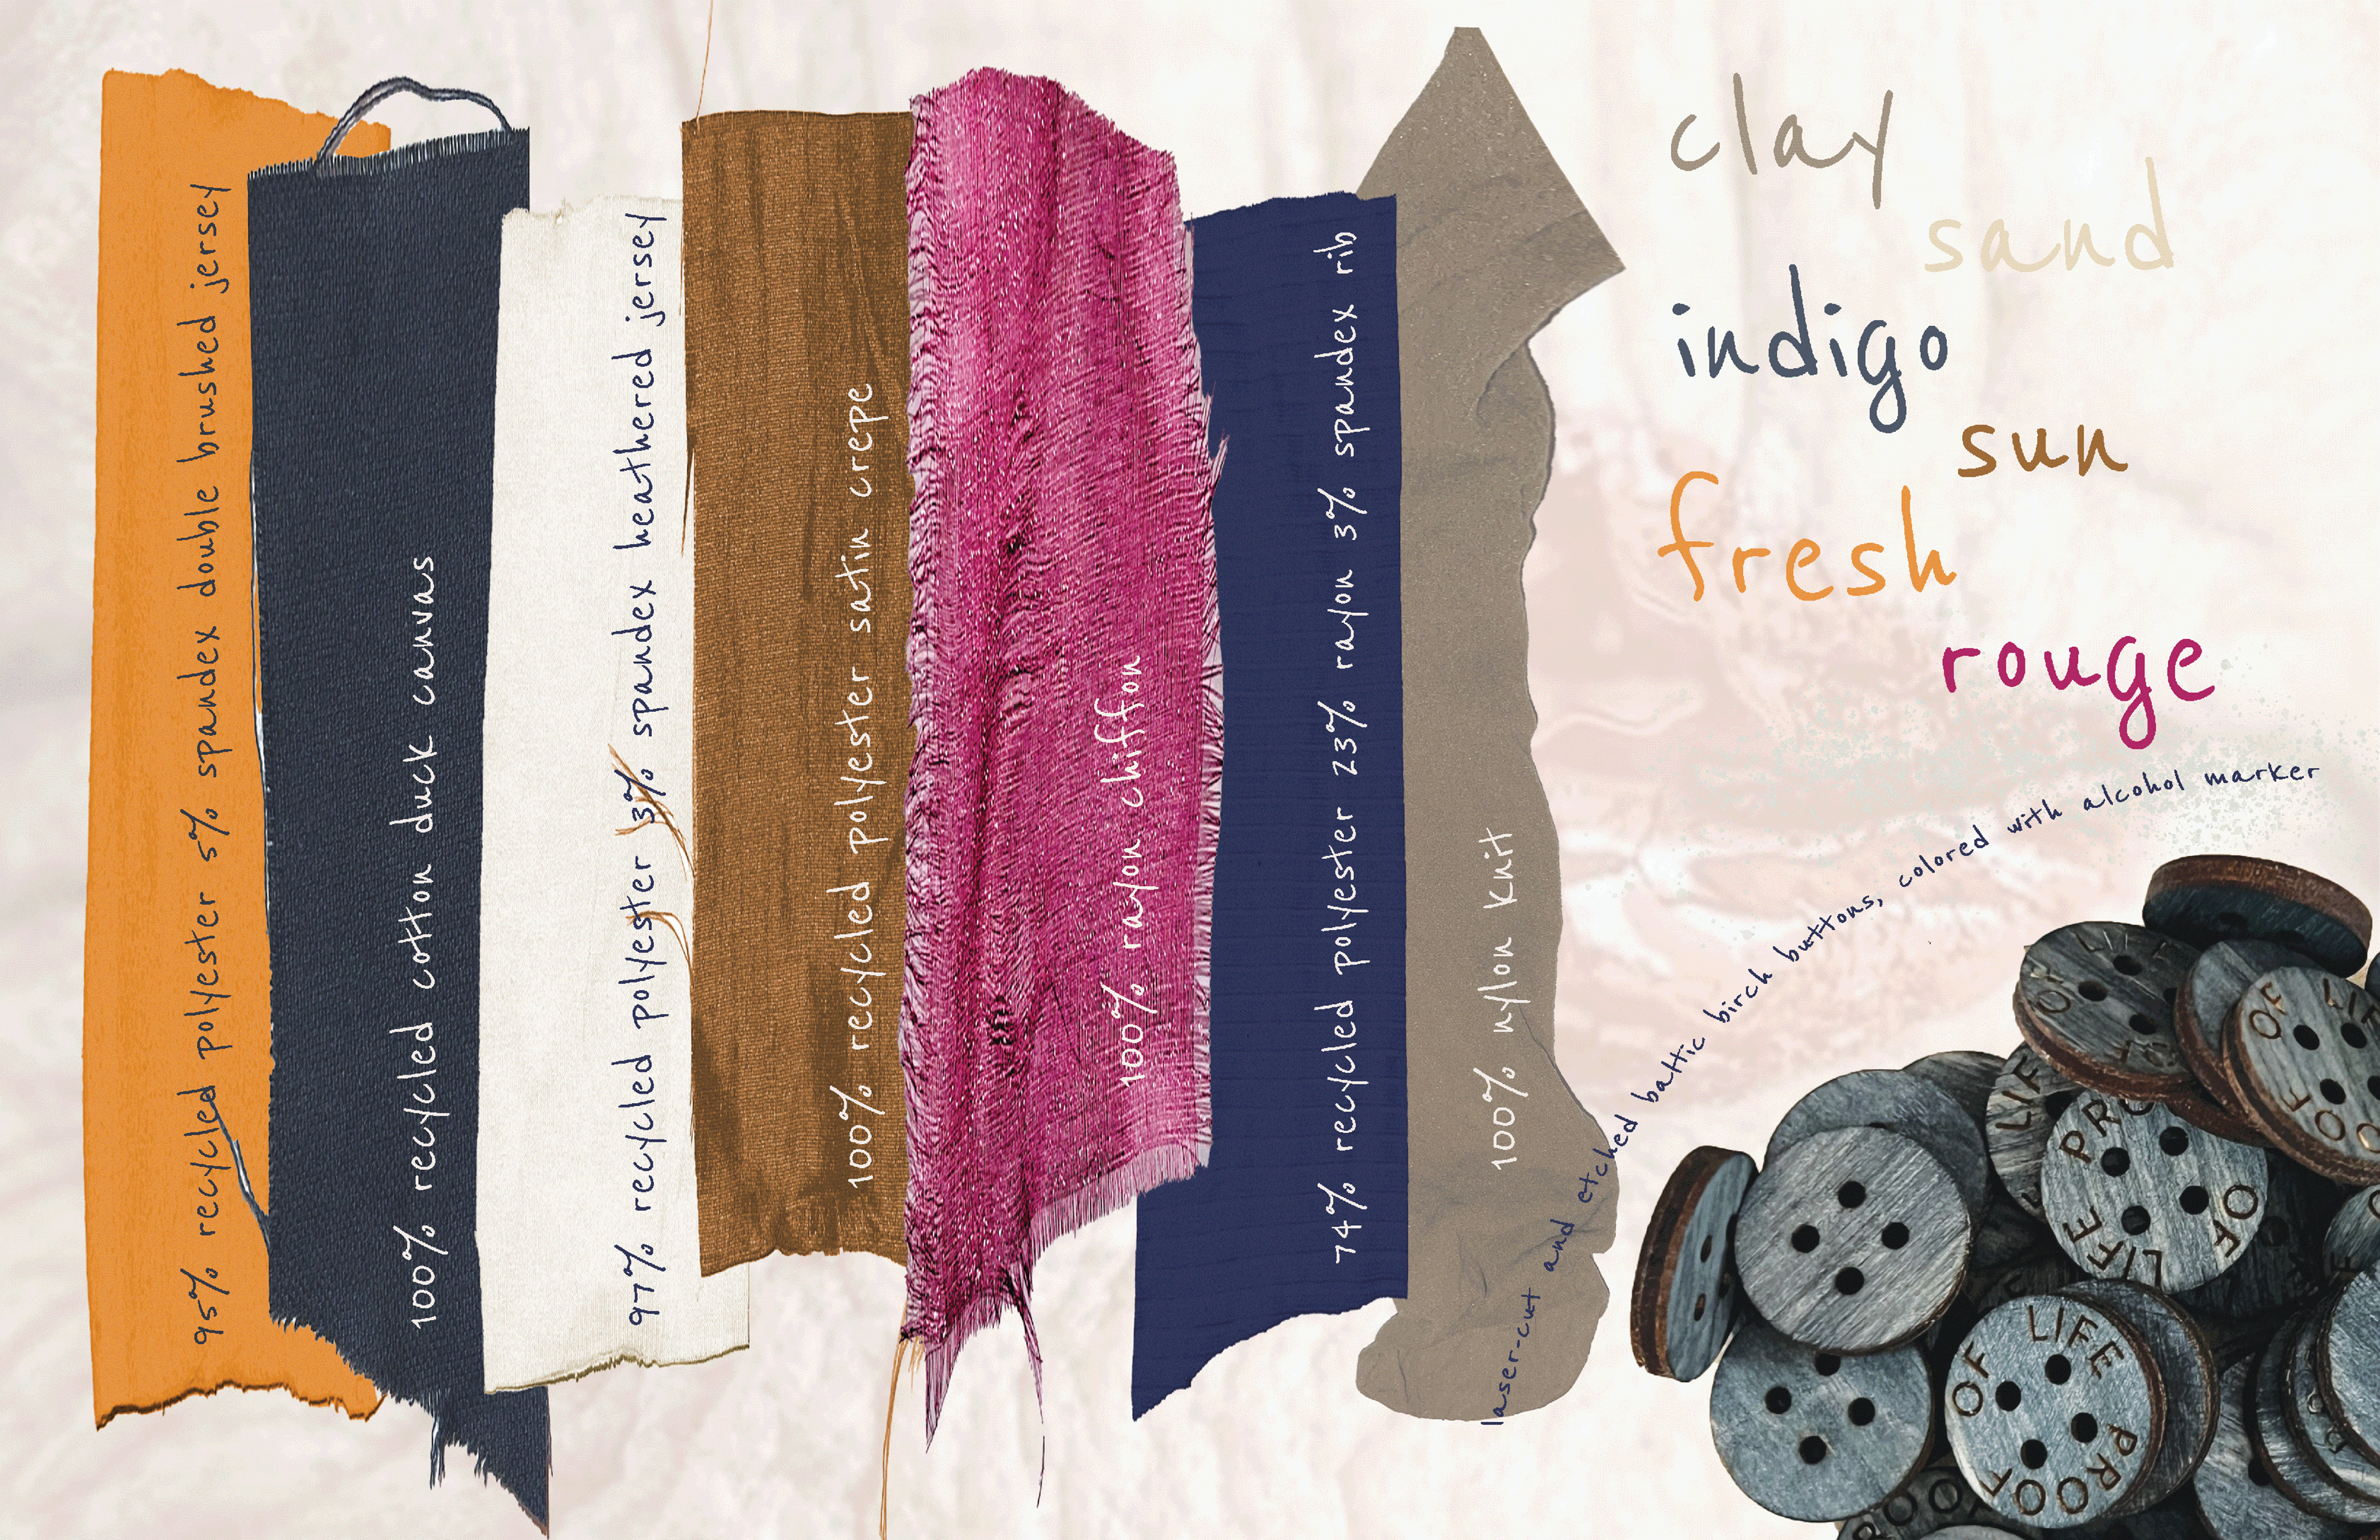 95% recycled polyester 5% spandex double brushed jersey
100% recycled cotton duck canvas
97% recycled polyester 3% spandex heathered jersey
100% recycled polyester satin crepe
100% rayon chiffon
74% recycled polyester 23% rayon 3% spandex rib
100% nylon knit
clay
sand
indigo
sun
fresh
rouge
laser-cut and etched baltic birch buttons, colored with alcohol marker
OF LIF
OF LI
OF
LIF
PRO
OF
LIFE
LIFE
PROOF
OF